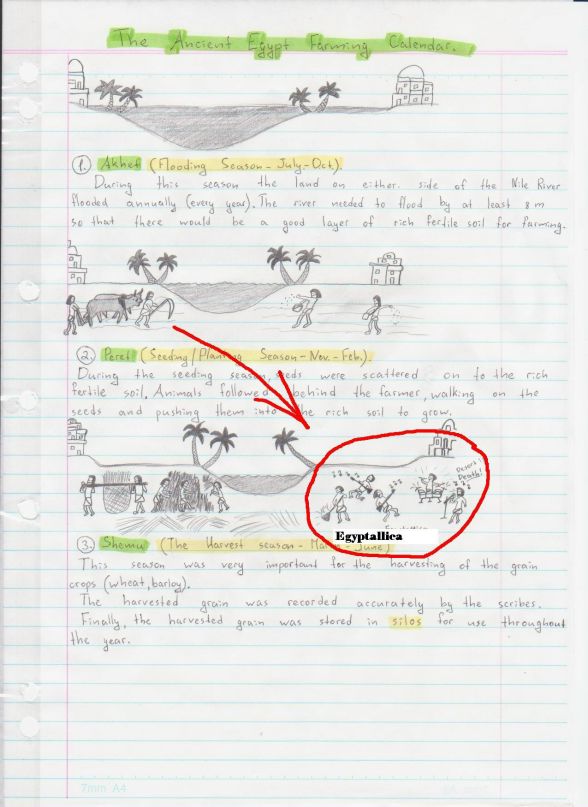 The Ancient Egypt Farming Calendar.
1. Akhet (Flooding Season - July-Oct).
During this season the land on either side of the Nile River
flooded annually (every year). The river needed to flood by at least 8 m
so that there would be a good layer of rich fertile soil for farming.
2. Peret (Seeding/Planting Season - Nov.-Feb.).
During the seeding season, seeds were scattered on to the rich
fertile soil. Animals followed behind the farmer, walking on the
seeds and pushing them into the rich soil to grow.
Desert
Death!
Egyptallica
3. Shemu (The Harvest season - March - June)
This season was very important for the harvesting of the grain
crops (wheat, barley).
The harvested grain was recorded accurately by the scribes.
Finally, the harvested grain was stored in silos for use throughout
the year.
7mm A4